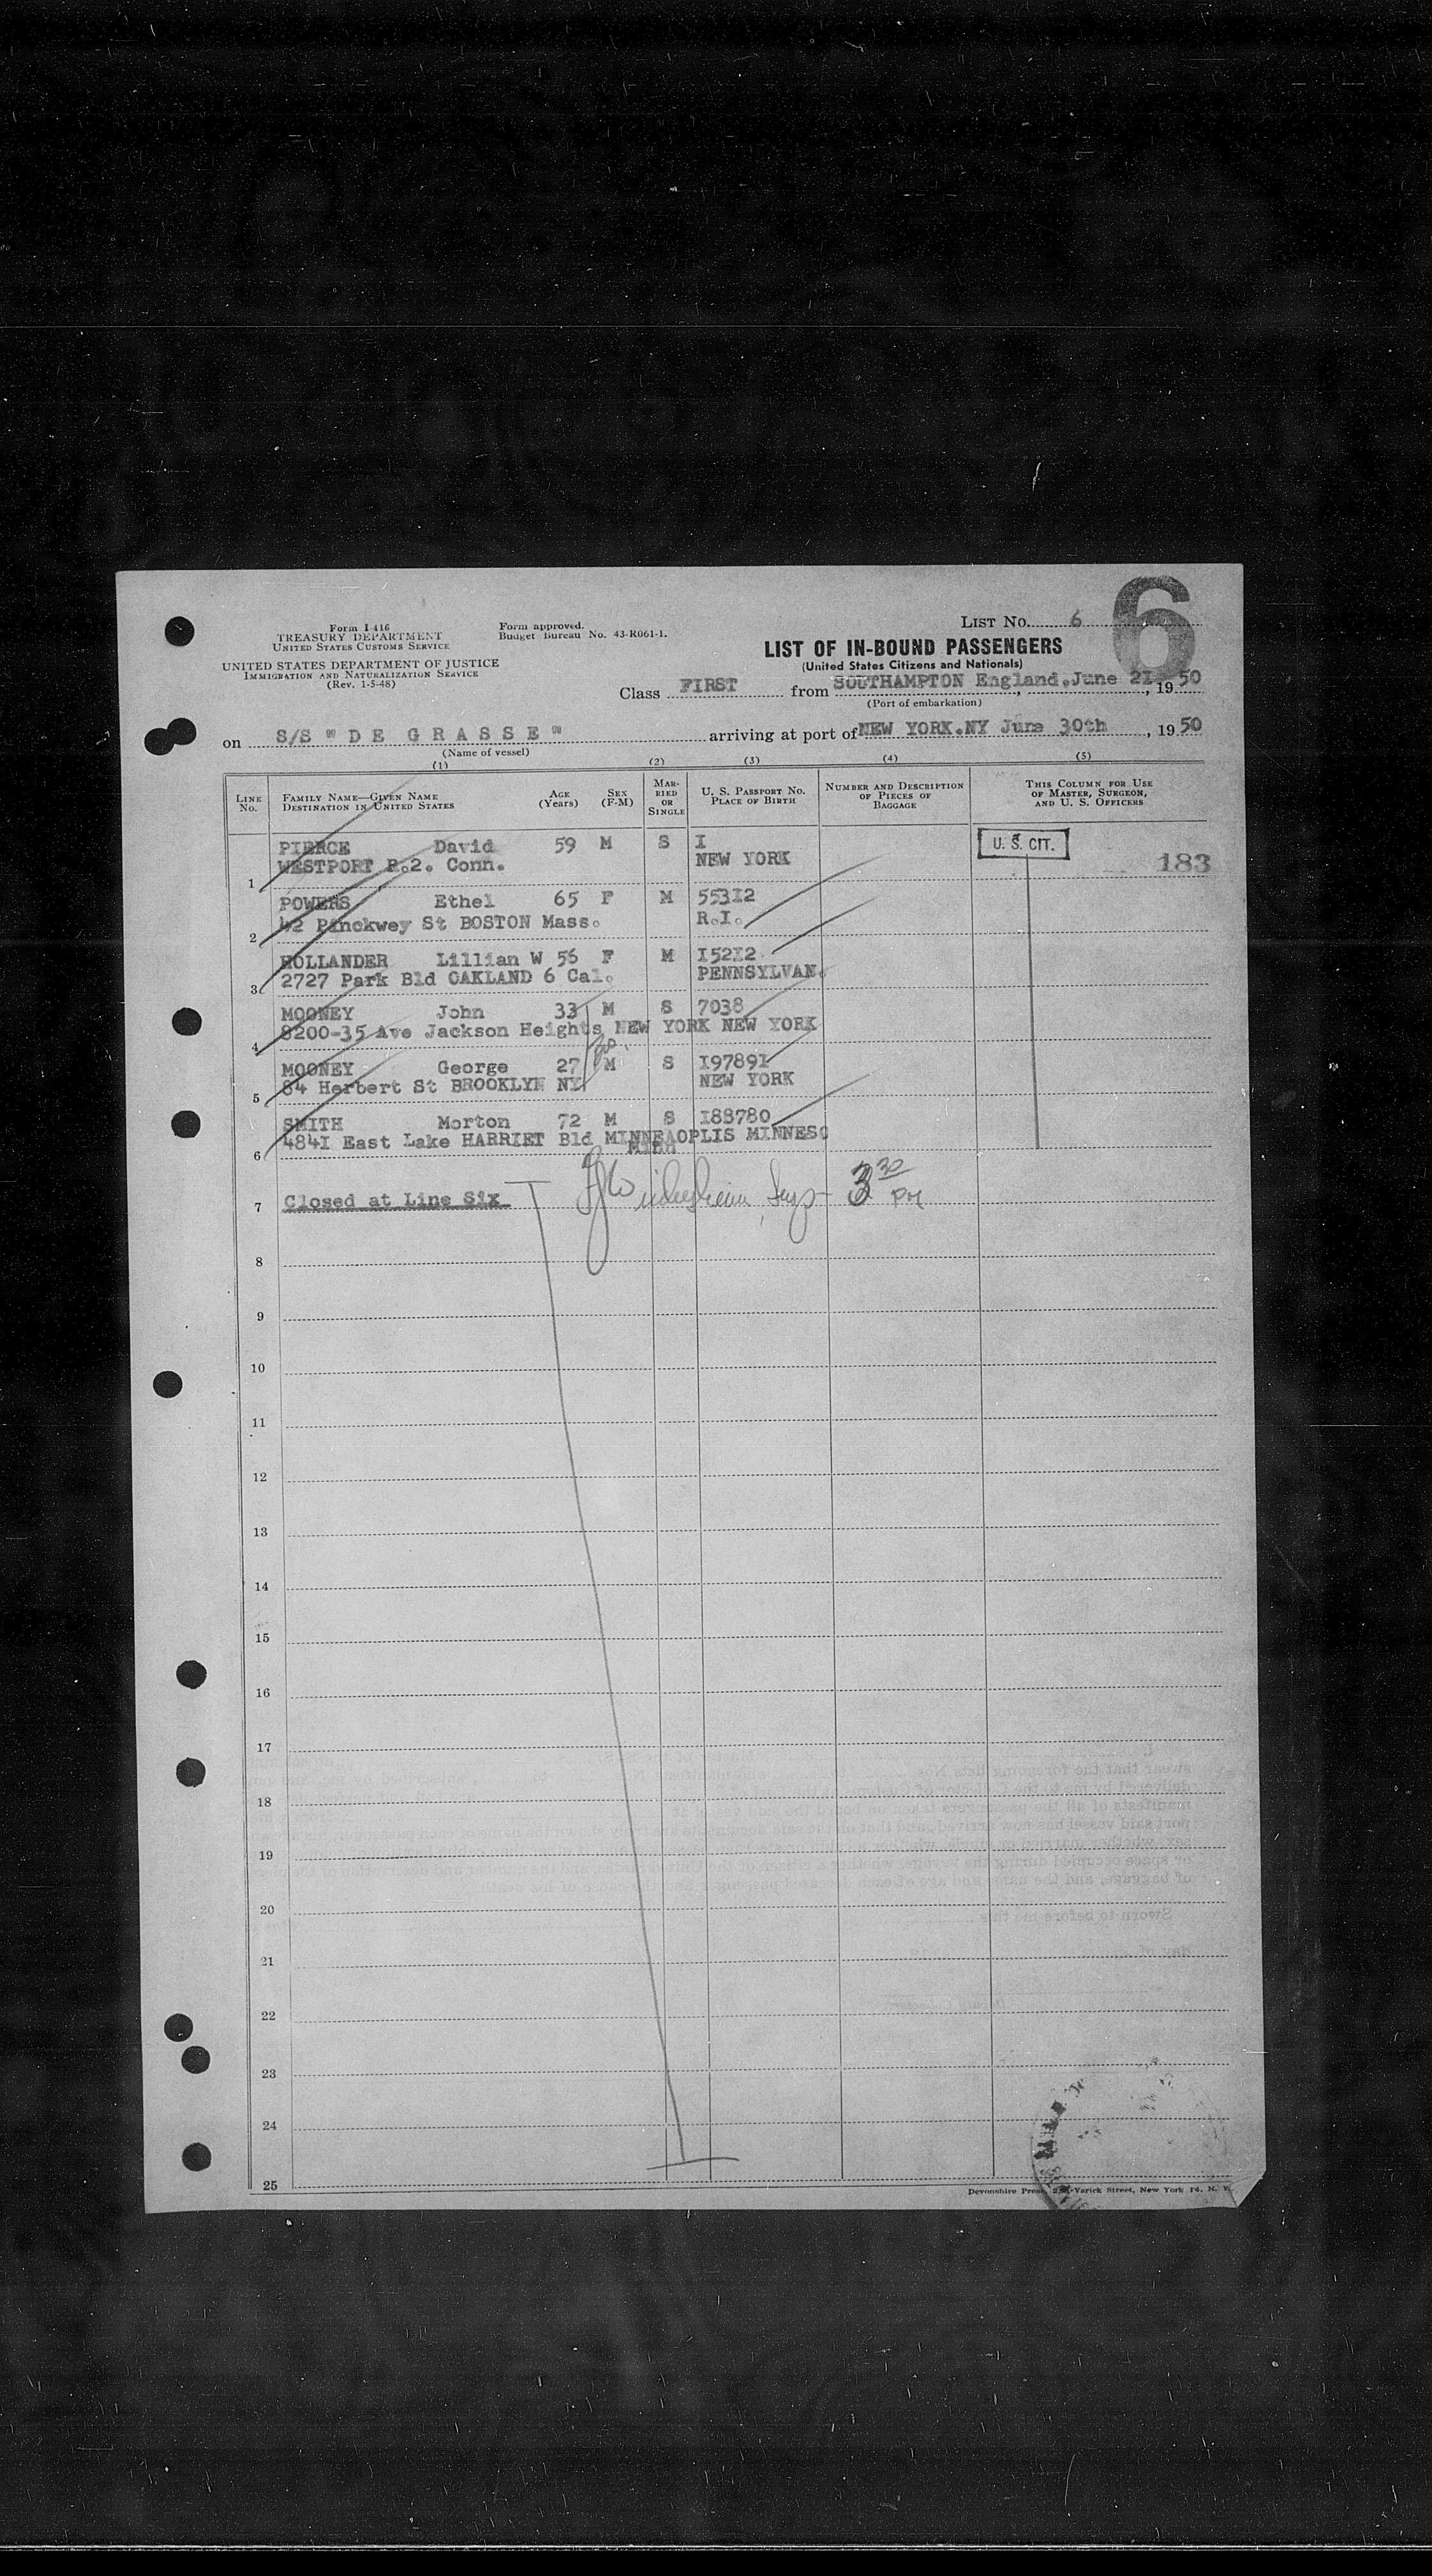 Form I-416
TREASURY DEPARTMENT
UNITED STATES CUSTOMS SERVICE
UNITED STATES DEPARTMENT OF JUSTICE
IMMIGRATION AND NATURALIZATION SERVICE
(Rev. 1-5-48)
Form approved.
Budget Bureau No. 43-R061-1.
LIST NO. 6
6
LIST OF IN-BOUND PASSENGERS
(United States Citizens and Nationals)
Class FIRST from SOUTHAMPTON England, June 2I, 1950
(Port of embarkation)
on S/S " DE GRASSE " arriving at port of NEW YORK.NY June 30th, 1950
(Name of vessel)
(1) (2) (3) (4) (5)
LINE NO. FAMILY NAME—GIVEN NAME DESTINATION IN UNITED STATES AGE (YEARS) SEX (F-M) MARRIED OR SINGLE U. S. PASSPORT NO. PLACE OF BIRTH NUMBER AND DESCRIPTION OF PIECES OF BAGGAGE THIS COLUMN FOR USE OF MASTER, SURGEON, AND U. S. OFFICERS
PIERCE David 59 M S I U. S. CIT.
1 WESTPORT R.2. Conn. NEW YORK 183
POWERS Ethel 65 F M 553I2
2 42 Pinckwey St BOSTON Mass. R.I.
HOLLANDER Lillian W 56 F M I52I2
3 2727 Park Bld OAKLAND 6 Cal. PENNSYLVAN.
MOONEY John 33 M S 7038
4 8200-35 Ave Jackson Heights NEW YORK NEW YORK
MOONEY George 27 M S I9789I
5 84 Herbert St BROOKLYN NY NEW YORK
SMITH Morton 72 M S I88780
6 484I East Lake HARRIET Bld MINNEAOPLIS MINNESO
Minn
7 Closed at Line Six 3 30 PM
8
9
10
11
12
13
14
15
16
17
18
19
20
21
22
23
24
25
Devonshire Press, Varick Street, New York 14, N. Y.